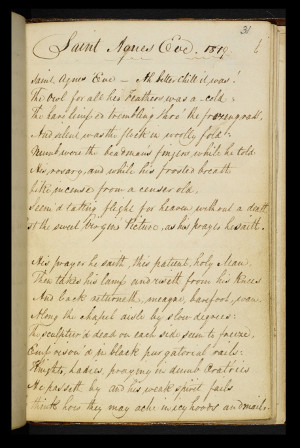 31
Saint Agnes Eve. 1819. 6
Saint Agnes Eve — Ah bitter chill it was!
The Owl for all his Feathers was a cold.
The hare limp'd trembling thro' the frozen grass,
And silent was the flock in woolly fold.
Numb were the beadsman's fingers while he told
His rosary, and while his frosted breath
Like incense from a censer old,
Seem'd taking flight for heaven without a death
the sweet Virgin's Picture, as his prayer he saith.
His prayer he saith, this patient, holy Man.
Then takes his lamp and riseth from his knees
And back returneth, meagre, barefoot, wan.
Along the chapel aisle by slow degrees:
The sculptur'd dead on each side seem to freeze,
Emprison'd in black purgatorial rails:
Knights, ladies, praying in dumb Orat'ries
He passeth by and his weak spirit fails
think how they may ache in icy hoods and mails.